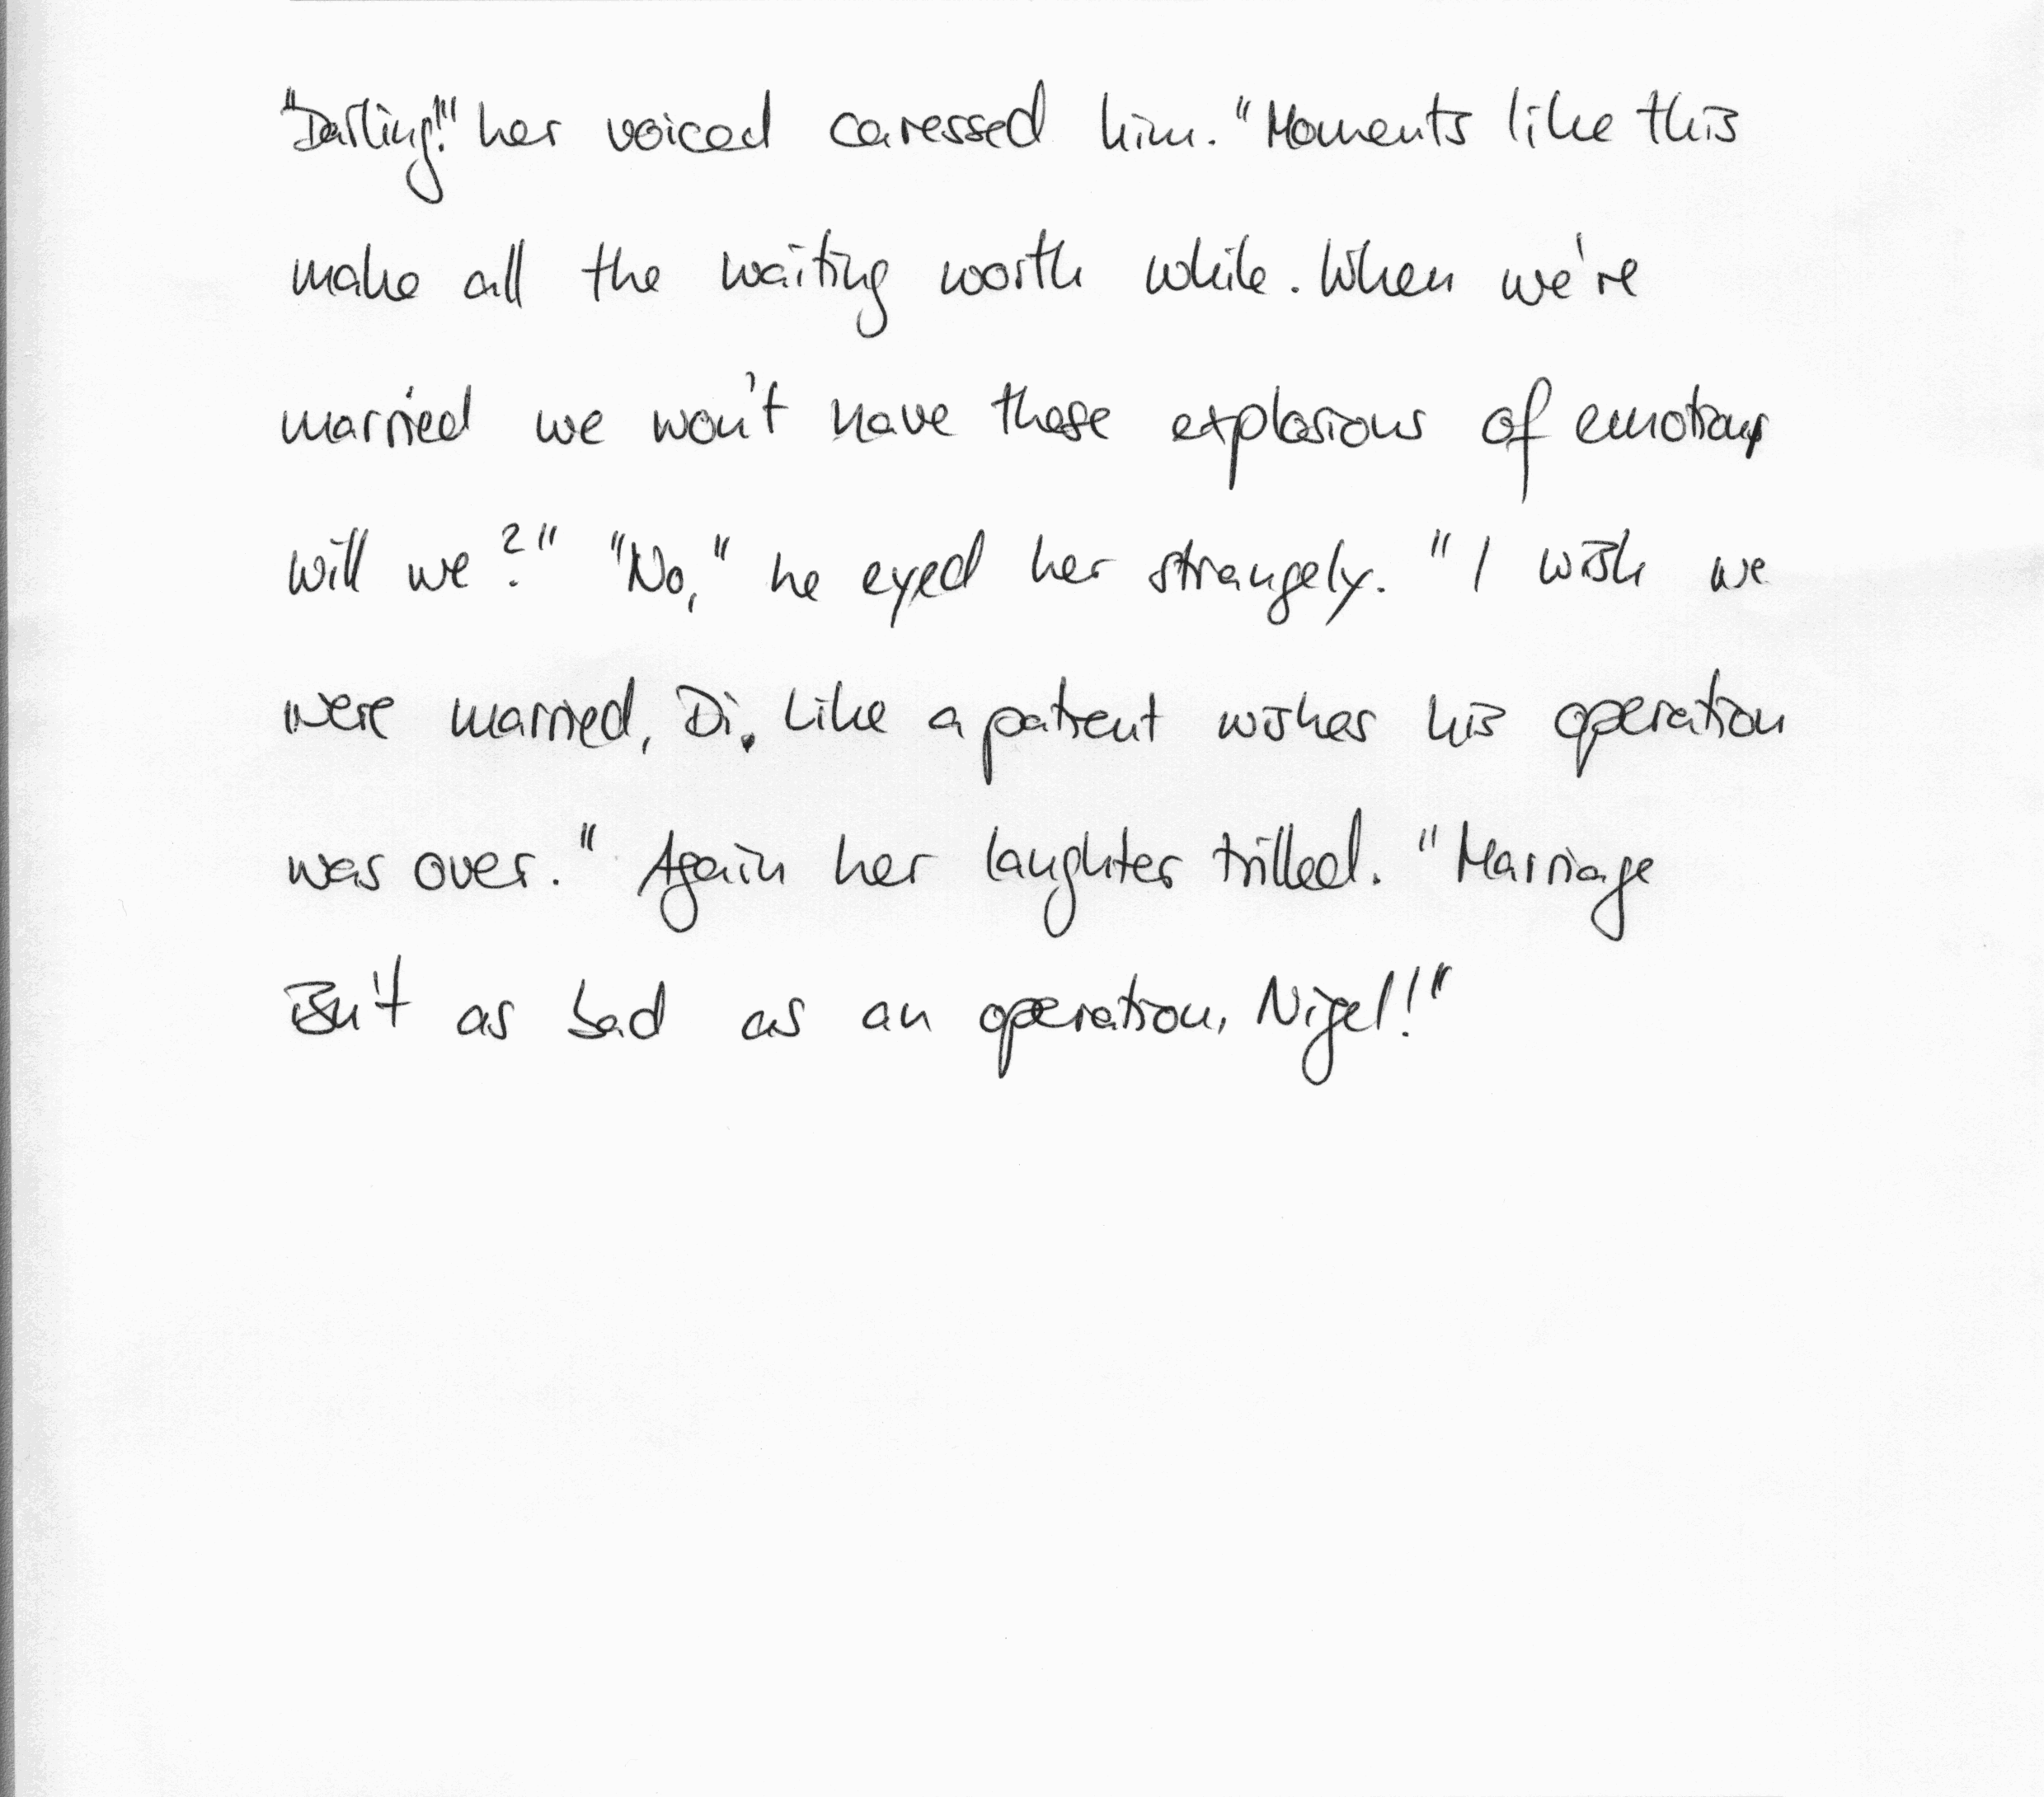 "Darling!" her voiced caressed him. "Moments like this
make all the waiting worth while. When we're
married we won't have these explosions of emotion,
will we?" "No," he eyed her strangely. "I wish we
were married, Di. Like a patient wishes his operation
was over." Again her laughter trilled. "Marriage
isn't as bad as an operation, Nigel!"